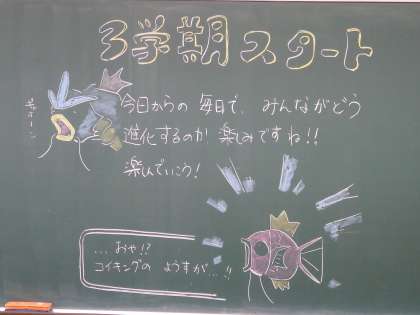 3学期スタート
今日からの 毎日で、みんながどう
進化するのか 楽しみですね!!
楽しんでいこう!
...おや!?
コイキングの ようすが...!!